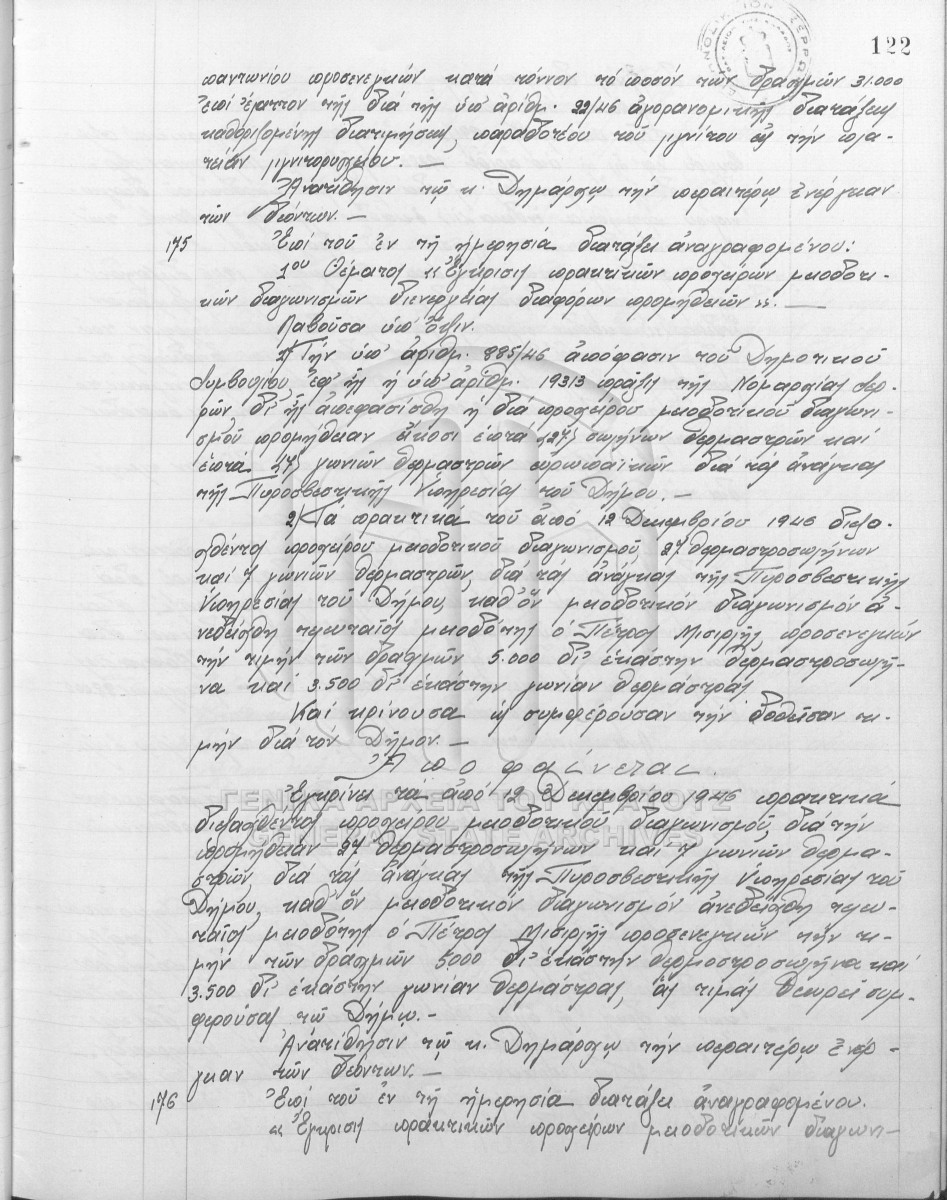 122
παντωνίου προσενεγκών κατά τόννον τό ποσόν τών δραχμών 31.000
ἐπί ἔλαττον τῆς διά τῆς ὑπ' ἀριθμ. 22/46 ἀγορανομικῆς διατάξεως
καθοριζομένης διατιμήσεως, παραδοτέου τοῦ λιγνίτου εἰς τήν πλα-
τεῖαν λιγνιτορυχείου. —
Ἀνατίθησιν τῷ κ. Δημάρχῳ τήν περαιτέρω ἐνέργειαν
τῶν δεόντων. —
175 Ἐπί τοῦ ἐν τῇ ἡμερησίᾳ διατάξει ἀναγραφομένου:
1ου Θέματος «Ἔγκρισις πρακτικῶν προχείρων μειοδοτι-
κῶν διαγωνισμῶν διενεργείας διαφόρων προμηθειῶν». —
Λαβοῦσα ὑπ' ὄψιν.
1) Τήν ὑπ' ἀριθμ. 885/46 ἀπόφασιν τοῦ Δημοτικοῦ
Συμβουλίου, ἐφ' ἧς ἡ ὑπ' ἀριθμ. 19313 πρᾶξις τῆς Νομαρχίας Σερ-
ρῶν, δι' ἧς ἀπεφασίσθη ἡ διά προχείρου μειοδοτικοῦ διαγωνι-
σμοῦ προμήθεια εἴκοσι ἑπτά (27) σωλήνων θερμαστρῶν καί
ἑπτά (7) γωνιῶν θερμαστρῶν εὐρωπαϊκῶν διά τάς ἀνάγκας
τῆς Πυροσβεστικῆς Ὑπηρεσίας τοῦ Δήμου. —
2) Τά πρακτικά τοῦ ἀπό 12 Δεκεμβρίου 1946 διεξα-
χθέντος προχείρου μειοδοτικοῦ διαγωνισμοῦ, 27 θερμαστροσωλήνων
καί 7 γωνιῶν θερμαστρῶν, διά τάς ἀνάγκας τῆς Πυροσβεστικῆς
Ὑπηρεσίας τοῦ Δήμου, καθ' ὅν μειοδοτικόν διαγωνισμόν ἀ-
νεδείχθη τελευταῖος μειοδότης ὁ Πέτρος Μισιρλῆς, προσενεγκών
τήν τιμήν τῶν δραχμῶν 5.000 δι' ἑκάστην θερμαστροσωλῆ-
να καί 3.500 δι' ἑκάστην γωνίαν θερμάστρας
Καί κρίνουσα ὡς συμφέρουσαν τήν δοθεῖσαν τι-
μήν διά τόν Δῆμον. —
Ἀποφαίνεται.
Ἐγκρίνει τά ἀπό 12 Δεκεμβρίου 1946 πρακτικά
διεξαχθέντος προχείρου μειοδοτικοῦ διαγωνισμοῦ, διά τήν
προμήθειαν 27 θερμαστροσωλήνων καί 7 γωνιῶν θερμα-
στρῶν, διά τάς ἀνάγκας τῆς Πυροσβεστικῆς Ὑπηρεσίας τοῦ
Δήμου, καθ' ὅν μειοδοτικόν διαγωνισμόν ἀνεδείχθη τελευ-
ταῖος μειοδότης ὁ Πέτρος Μισιρλῆς προσενεγκών τήν τι-
μήν τῶν δραχμῶν 5000 δι' ἑκάστην θερμοστροσωλῆνα καί
3.500 δι' ἑκάστην γωνίαν θερμάστρας, ἅς τιμάς θεωρεῖ συμ-
φερούσας τῷ Δήμῳ. —
Ἀνατίθησιν τῷ κ. Δημάρχῳ τήν περαιτέρω ἐνέρ-
γειαν τῶν δεόντων. —
176 Ἐπί τοῦ ἐν τῇ ἡμερησίᾳ διατάξει ἀναγραφομένου.
«Ἔγκρισις πρακτικῶν προχείρων μειοδοτικῶν διαγωνι-
ΓΕΝΙΚΑ ΑΡΧΕΙΑ ΤΟΥ ΚΡΑΤΟΥΣ
GENERAL STATE ARCHIVES